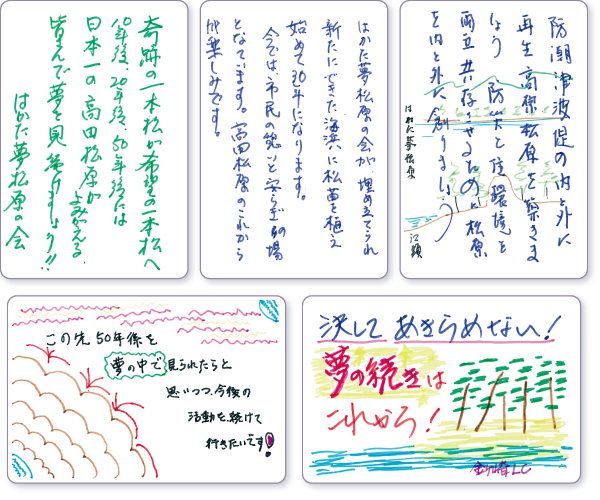 奇跡の一本松が希望の一本松へ
10年後、20年後、50年後には
日本一の高田松原が
よみがえる.
皆んで夢を見続けましょう!!
はかた夢松原の会
はかた夢松原の会が、埋め立てられ
新たにできた海浜に松苗を植え
始めて30年になります。
今では、市民の憩いと安らぎの場
となています。高田松原のこれから
が楽しみです。
防潮津波堤の内と外に
再生高田松原を築きま
しょう 防災と住環境を
両立共存させるために松原
を内と外に創りましょう
はかた夢松原
江頭
この先50年係を
夢の中で見られたらと
思いつつ、今後の
活動を続けて
行きたいです!
決して あきらめない!
夢の続きは
これから!
金ヶ崎LC